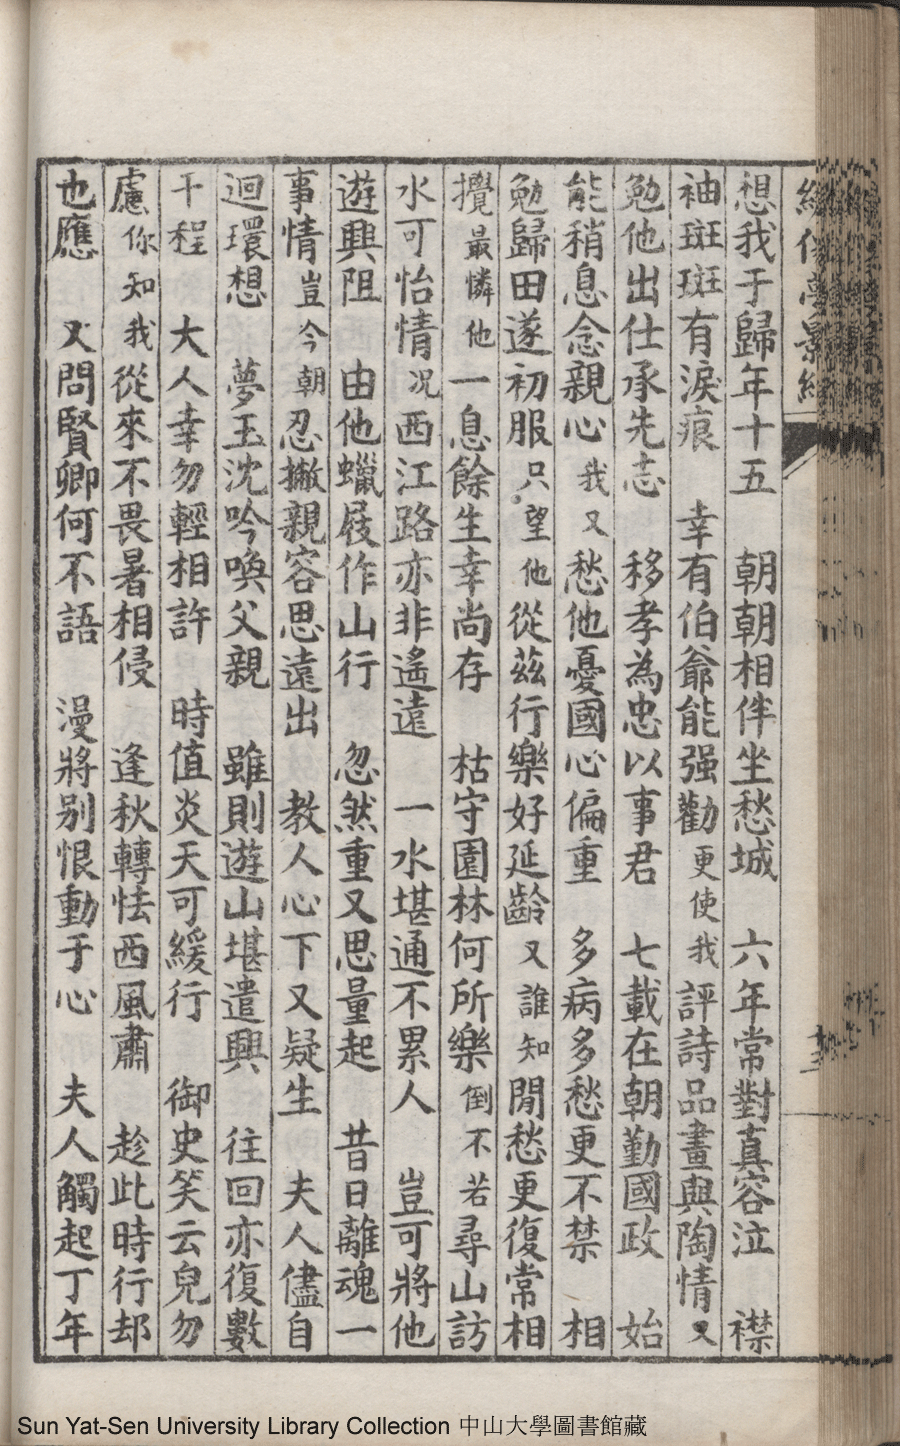 想我于歸年十五 朝朝相伴坐愁城 六年常對真容泣 襟
袖斑斑有淚痕 幸有伯爺能强勸 更使我評詩品畫與陶情 又
勉他出仕承先志 移孝為忠以事君 七載在朝勤國政 始
能稍息念親心 我又愁他憂國心偏重 多病多愁更不禁 相
勉歸田遂初服 只望他從茲行樂好延齡 又誰知閒愁更復常相
攪 最憐他一息餘生幸尚存 枯守園林何所樂 倒不若尋山訪
水可怡情 况西江路亦非遙遠 一水堪通不累人 豈可將他
遊興阻 由他蠟屐作山行 忽然重又思量起 昔日離魂一
事情 豈今朝忍撇親容思遠出 教人心下又疑生 夫人儘自
迴環想 夢玉沈吟喚父親 雖則遊山堪遣興 往回亦復數
千程 大人幸勿輕相許 時值炎天可緩行 御史笑云兒勿
慮 你知我從來不畏暑相侵 逢秋轉怯西風肅 趁此時行却
也應 又問賢卿何不語 漫將别恨動于心 夫人觸起丁年
Sun Yat-Sen University Library Collection 中山大學圖書館藏